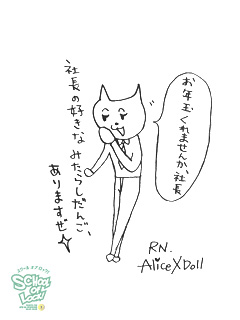 お年玉
くれませんか、社長
社長の好きな
みたらしだんご、
ありますぜ☆
RN.
Alice X Doll
SCHOOL
OF
LOCK!